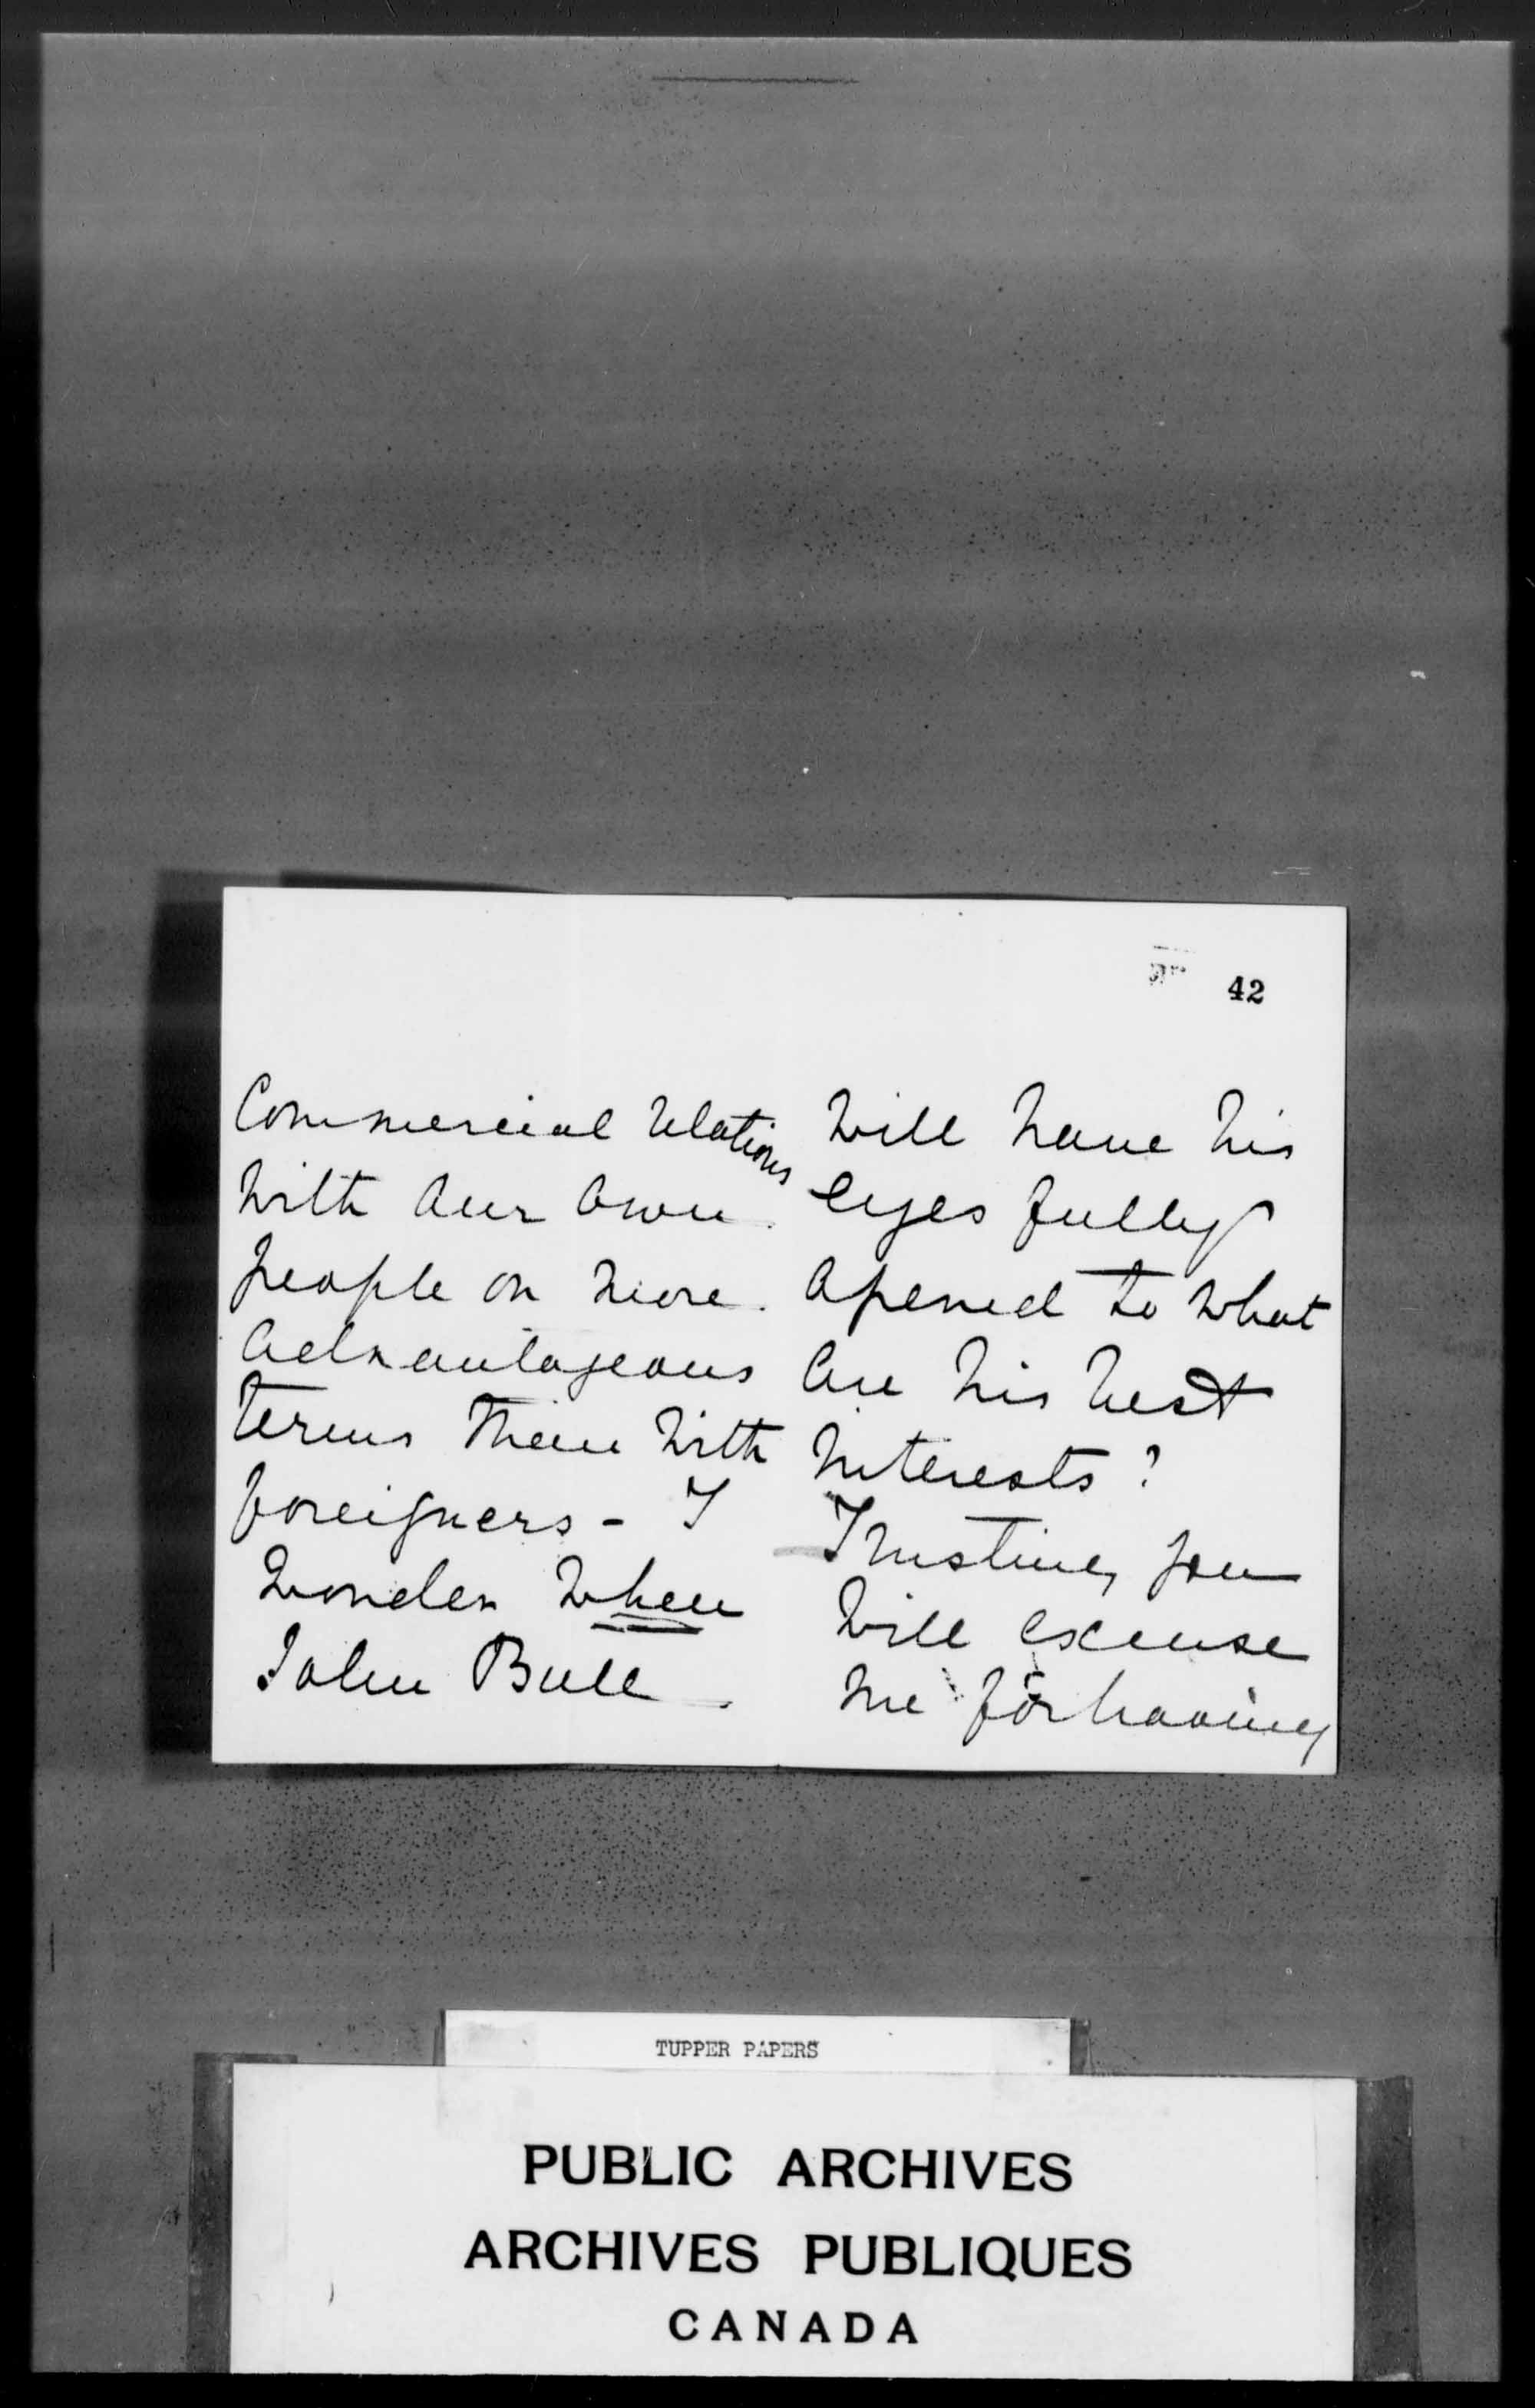 42
Commercial relations
with our own
people on more
advantageous
terms than with
foreigners - I
wonder when
John Bull
will have his
eyes fully
opened to what
are his best
interests?
Trusting you
will excuse
me for having
TUPPER PAPERS
PUBLIC ARCHIVES
ARCHIVES PUBLIQUES
CANADA